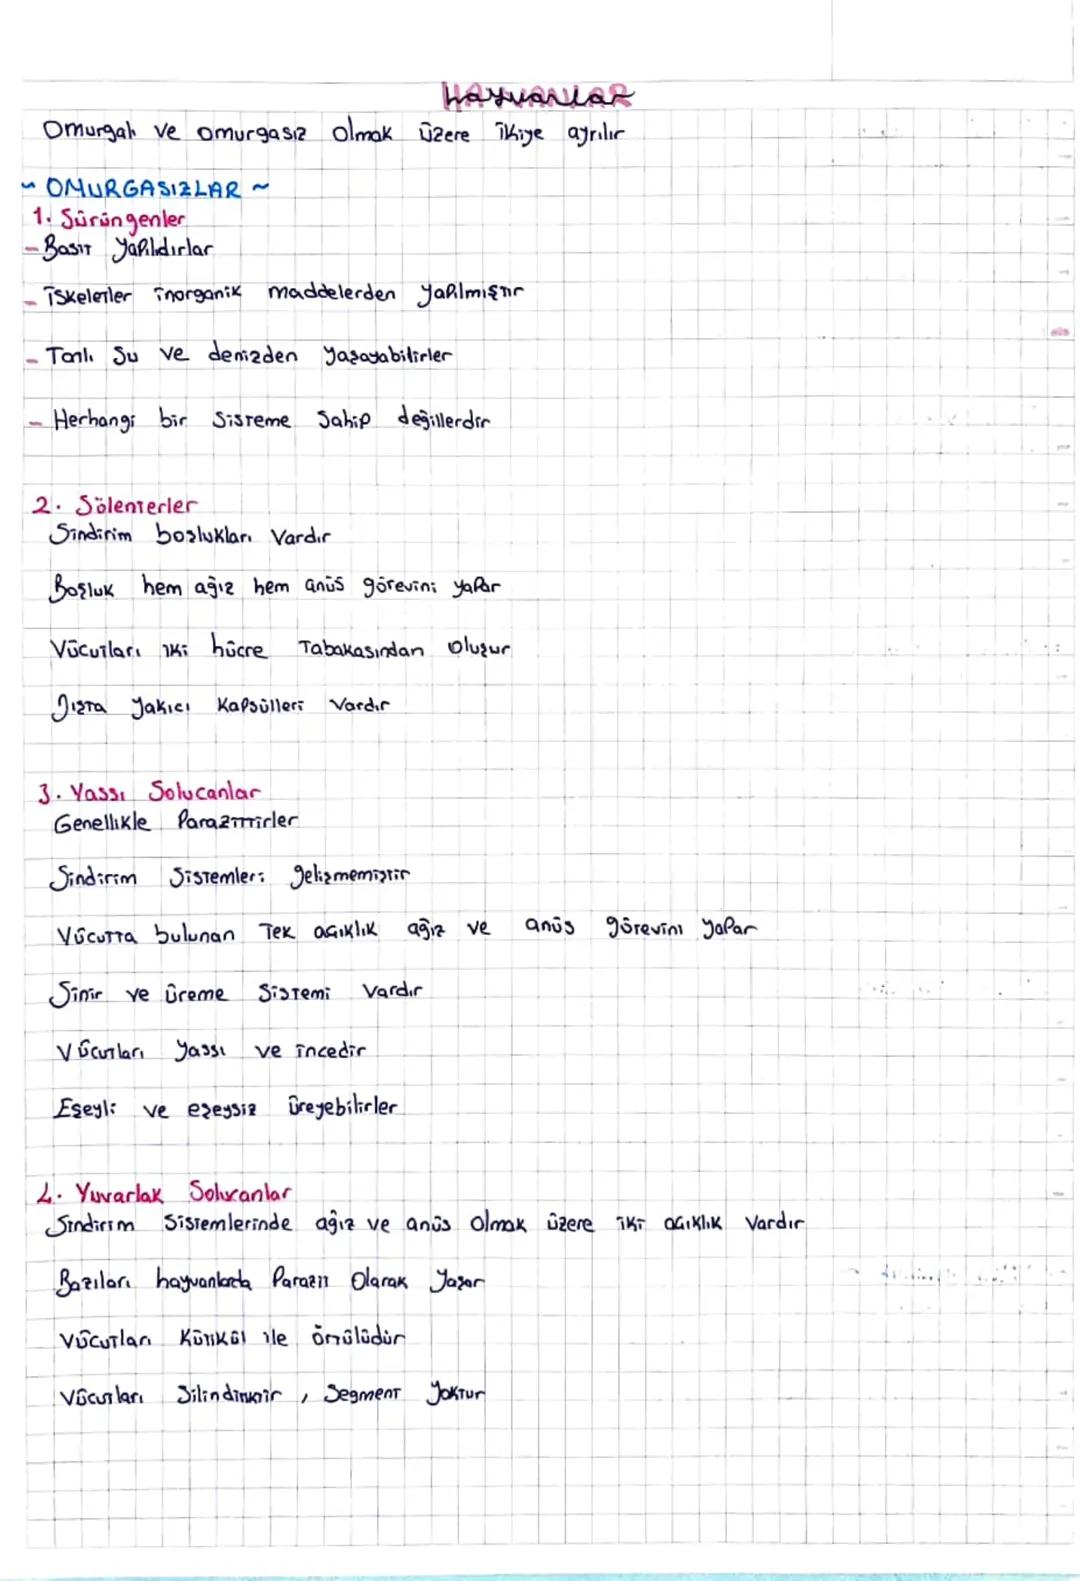 Hayvanlar
Omurgalı ve omurgasız olmak üzere ikiye ayrılır
~ OMURGASIZLAR ~
1. Sürüngenler
- Basit yapılıdırlar
- İskeletler inorganik maddelerden yapılmıştır
- Tatlı su ve denizden yaşayabilirler
- Herhangi bir sisteme sahip değillerdir
2. Sölenterler
Sindirim boşlukları vardır
Boşluk hem ağız hem anüs görevini yapar
Vücutları iki hücre tabakasından oluşur
Dışta yakıcı kapsülleri vardır
3. Yassı Solucanlar
Genellikle parazittirler
Sindirim sistemleri gelişmemiştir
Vücutta bulunan tek açıklık ağız ve anüs görevini yapar
Sinir ve üreme sistemi vardır
Vücutları yassı ve incedir
Eşeyli ve eşeysiz üreyebilirler
4. Yuvarlak Solucanlar
Sindirim sistemlerinde ağız ve anüs olmak üzere iki açıklık vardır
Bazıları hayvanlarda parazit olarak yaşar
Vücutları kütikül ile örtülüdür
Vücutları silindiriktir, segment yoktur